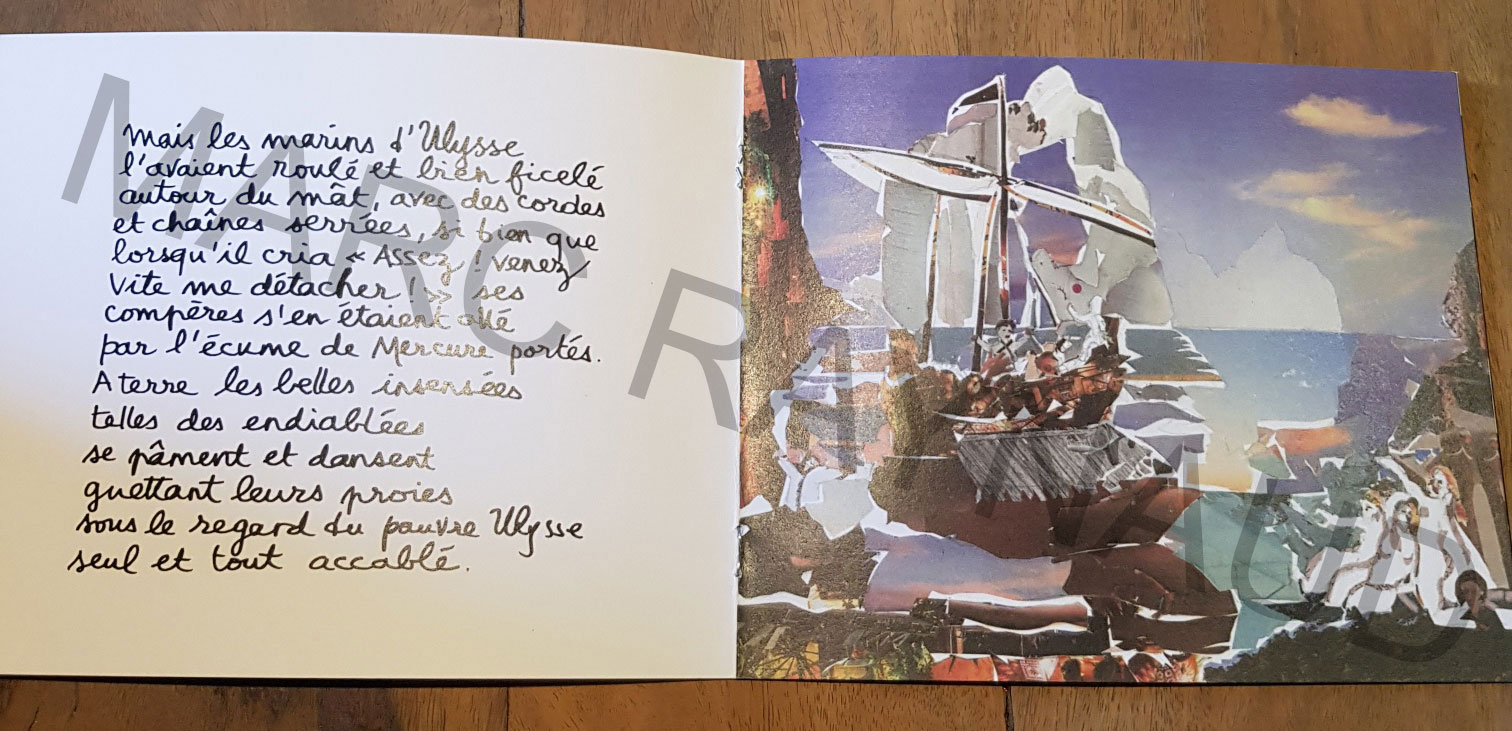 Mais les marins d'Ulysse
l'avaient roulé et bien ficelé
autour du mât, avec des cordes
et chaînes serrées, si bien que
lorsqu'il cria « Assez ! venez
vite me détacher ! » ses
compères s'en étaient allé
par l'écume de Mercure portés.
A terre les belles insensées
telles des endiablées
se pâment et dansent
guettant leurs proies
sous le regard du pauvre Ulysse
seul et tout accablé.
MARC RAYNAUD